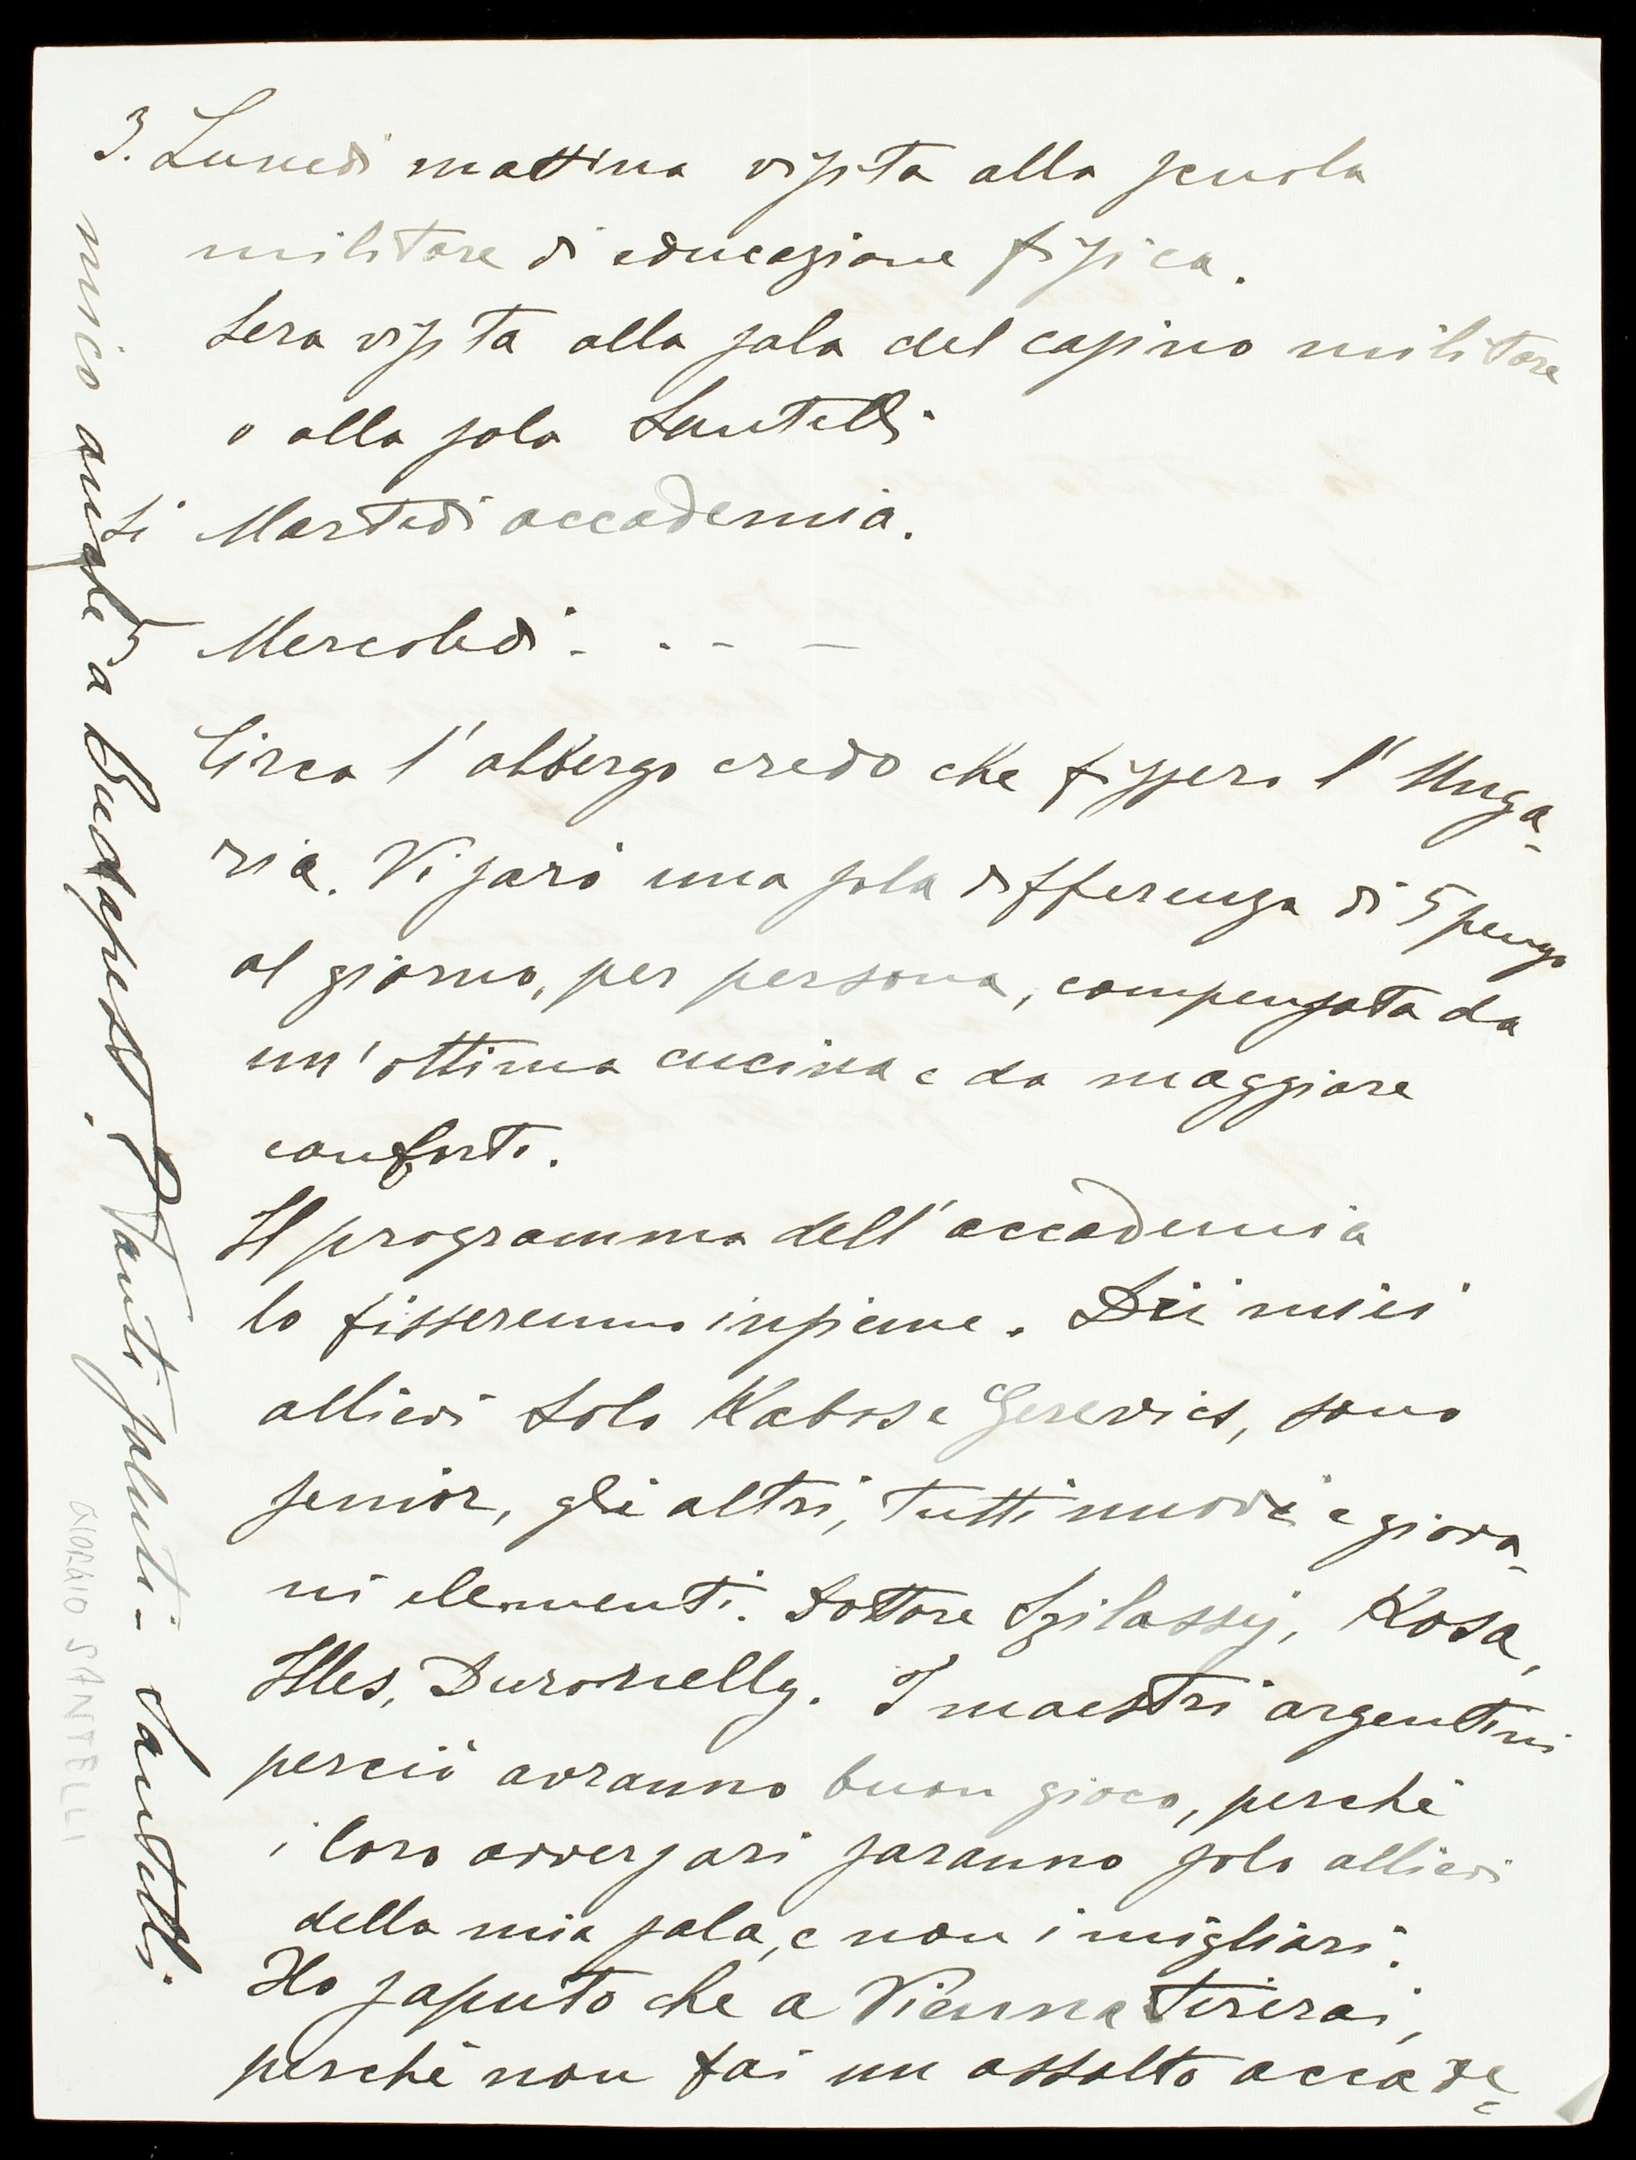 3. Lunedì mattina visita alla scuola
militare di educazione fisica.
Sera visita alla sala del casino militare
o alla sala Santelli
Martedi accademia.
5 Mercoledi - . - —
Circa l'albergo credo che fisserò l'Unga-
ria. Vi sarà una sola differenza di 5 pengo
al giorno, per persona, compensata da
un'ottima cucina e da maggiore
conforto.
Il programma dell'accademia
lo fisseremo insieme. Dei miei
allievi solo Kabos e Gerevics, sono
senior, gli altri, tutti nuovi e giova-
ni elementi. Dottore Szilassy, Rosa,
Illes, Duronelly. I maestri argentini
perciò avranno buon gioco, perchè
i loro avversari saranno solo allievi
della mia sala, e non i migliori.
Ho saputo che a Vienna tirerai,
perchè non fai un assalto accade-
mico anche a Budapest? Tanti saluti - Santelli.
GIORGIO SANTELLI